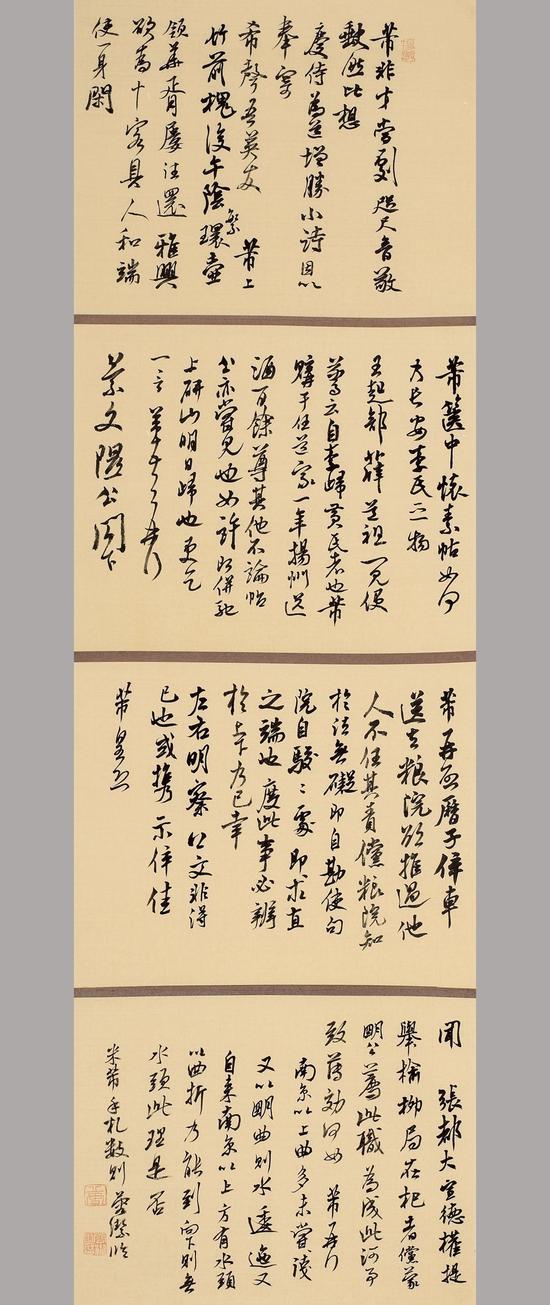 芾非才當劇咫尺音敬
缺然比想
慶侍為道增勝小詩因以
奉寄
希聲吾英友 芾上
竹前槐後午陰環壺
繁
領華胥屢往還雅興
欲為十客具人和端
使一身閑
芾篋中懷素帖如何
乃長安李氏之物
王起部薛道祖一見便
驚云自李歸黃氏者也芾
購于任道家一年揚州送
酒百餘尊其他不論帖
公亦嘗見也如許即併馳
上研山明日歸也更乞
一言芾頓首再拜
景文隰公閤下
芾再啟曆子倅車
送至糧院欲推過他
人不任其責儻糧院知
於法無礙即自勘使句
院自駮〻處即求直
之端也度此事必辨
於上下乃已幸
左右明察公文非得
已也或攜示倅佳
芾皇恐
聞 張都大宣德權提
舉榆柳局在杞者儻蒙
明公薦此職為成此河事
致薄効何如 芾再拜
南京以上曲多未嘗淺
又以明曲則水逶迤又
自來南京以上方有水頭
以曲折乃能到向下則無
水頭此理是否
米芾手札數則